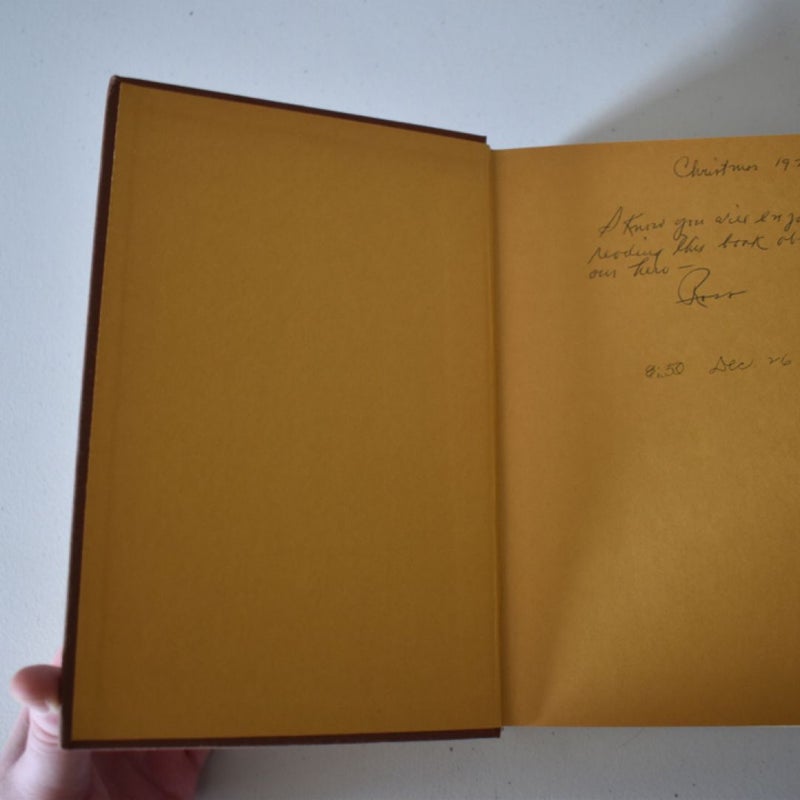 Christmas 19
I know you will enjo
reading this book ab
our hero -
Ross
8:50 Dec 26